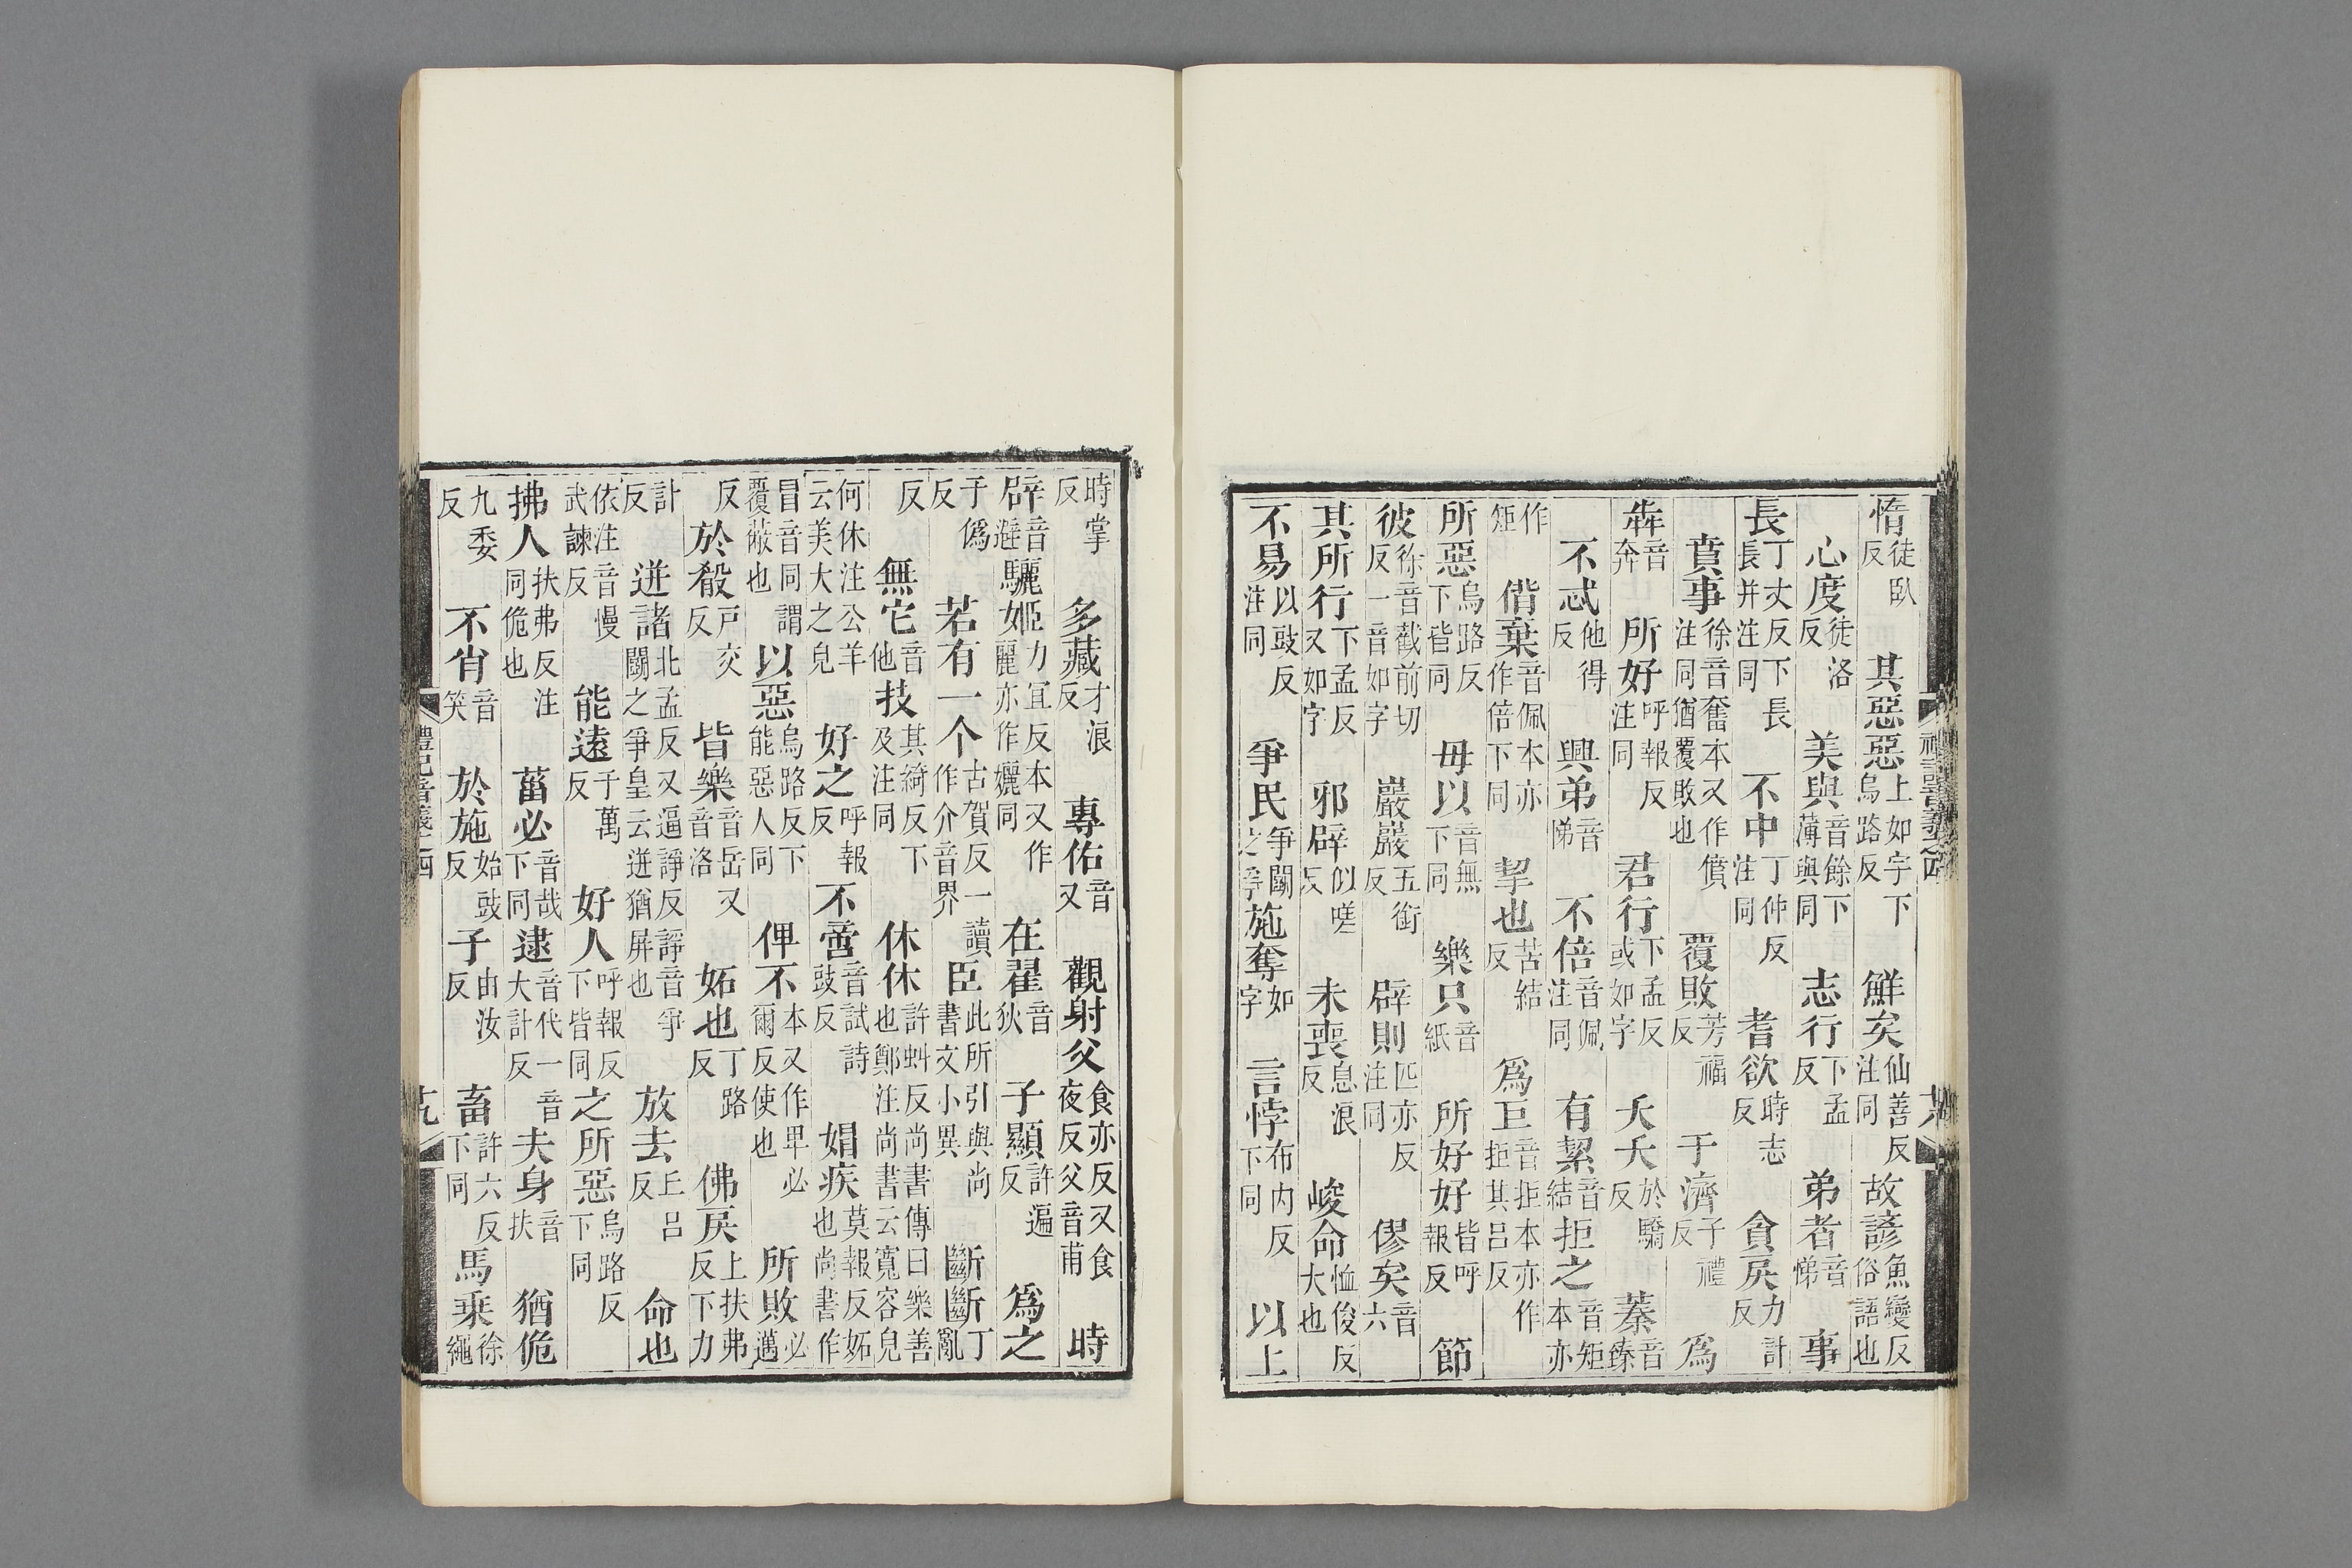 惰徒臥反 其惡惡上如字下烏路反 鮮矣仙善反注同 故諺魚變反俗語也
心度徒洛反 美與音餘下薄與同 志行下孟反 弟者音悌 事
長丁丈反下長長并注同 不中丁仲反注同 耆欲時志反 貪戾力計反
賁事徐音奮本又作僨注同猶覆敗也 覆敗芳福反 于濟子禮反 爲
犇音奔 所好呼報反注同 君行下孟反或如字 夭夭於驕反 蓁音臻
不忒他得反 興弟音悌 不倍音佩注同 有絜音結 拒之音矩本亦
作矩 偝棄音佩本亦作倍下同 挈也苦結反 爲巨音拒本亦作拒其呂反
所惡烏路反下皆同 毋以音無下同 樂只音紙 所好好皆呼報反 節
彼徐音截前切反一音如字 巖巖五銜反 辟則匹亦反注同 僇矣音六
其所行下孟反又如字 邪辟似嗟反 未喪息浪反 峻命恤俊反大也
不易以豉反注同 爭民爭鬬之爭 施奪如字 言悖布内反下同 以上
時掌反 多藏才浪反 專佑音又 觀射父食亦反又食夜反父音甫 時
辟音避 驪姬力宜反本又作麗亦作孋同 在翟音狄 子顯許遍反 爲之
于僞反 若有一个古賀反一讀作介音界 臣此所引與尚書文小異 斷斷丁亂
反 無它音他 技其綺反下及注同 休休許虯反尚書傳曰樂善也鄭注尚書云寬容皃
何休注公羊云美大之皃 好之呼報反 不啻音試詩豉反 媢疾莫報反妬也尚書作
冒音同謂覆蔽也 以惡烏路反下能惡人同 俾不本又作卑必爾反使也 所敗必邁
反 於殽戶交反 皆樂音岳又音洛 妬也丁路反 佛戾上扶弗反下力
計反 迸諸北孟反又逼諍反諍音爭鬬之爭皇云迸猶屏也 放去丘呂反 命也
依注音慢武諫反 能遠于萬反 好人呼報反下皆同 之所惡烏路反下同
拂人扶弗反注同佹也 菑必音哉下同 逮音代一音大計反 夫身音扶 猶佹
九委反 不肖音笑 於施始豉反 子由汝反 畜許六反下同 馬乘徐繩